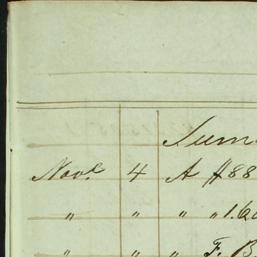 Sum
Novr 4 A $88
" " " " 1.60
" " " F. B